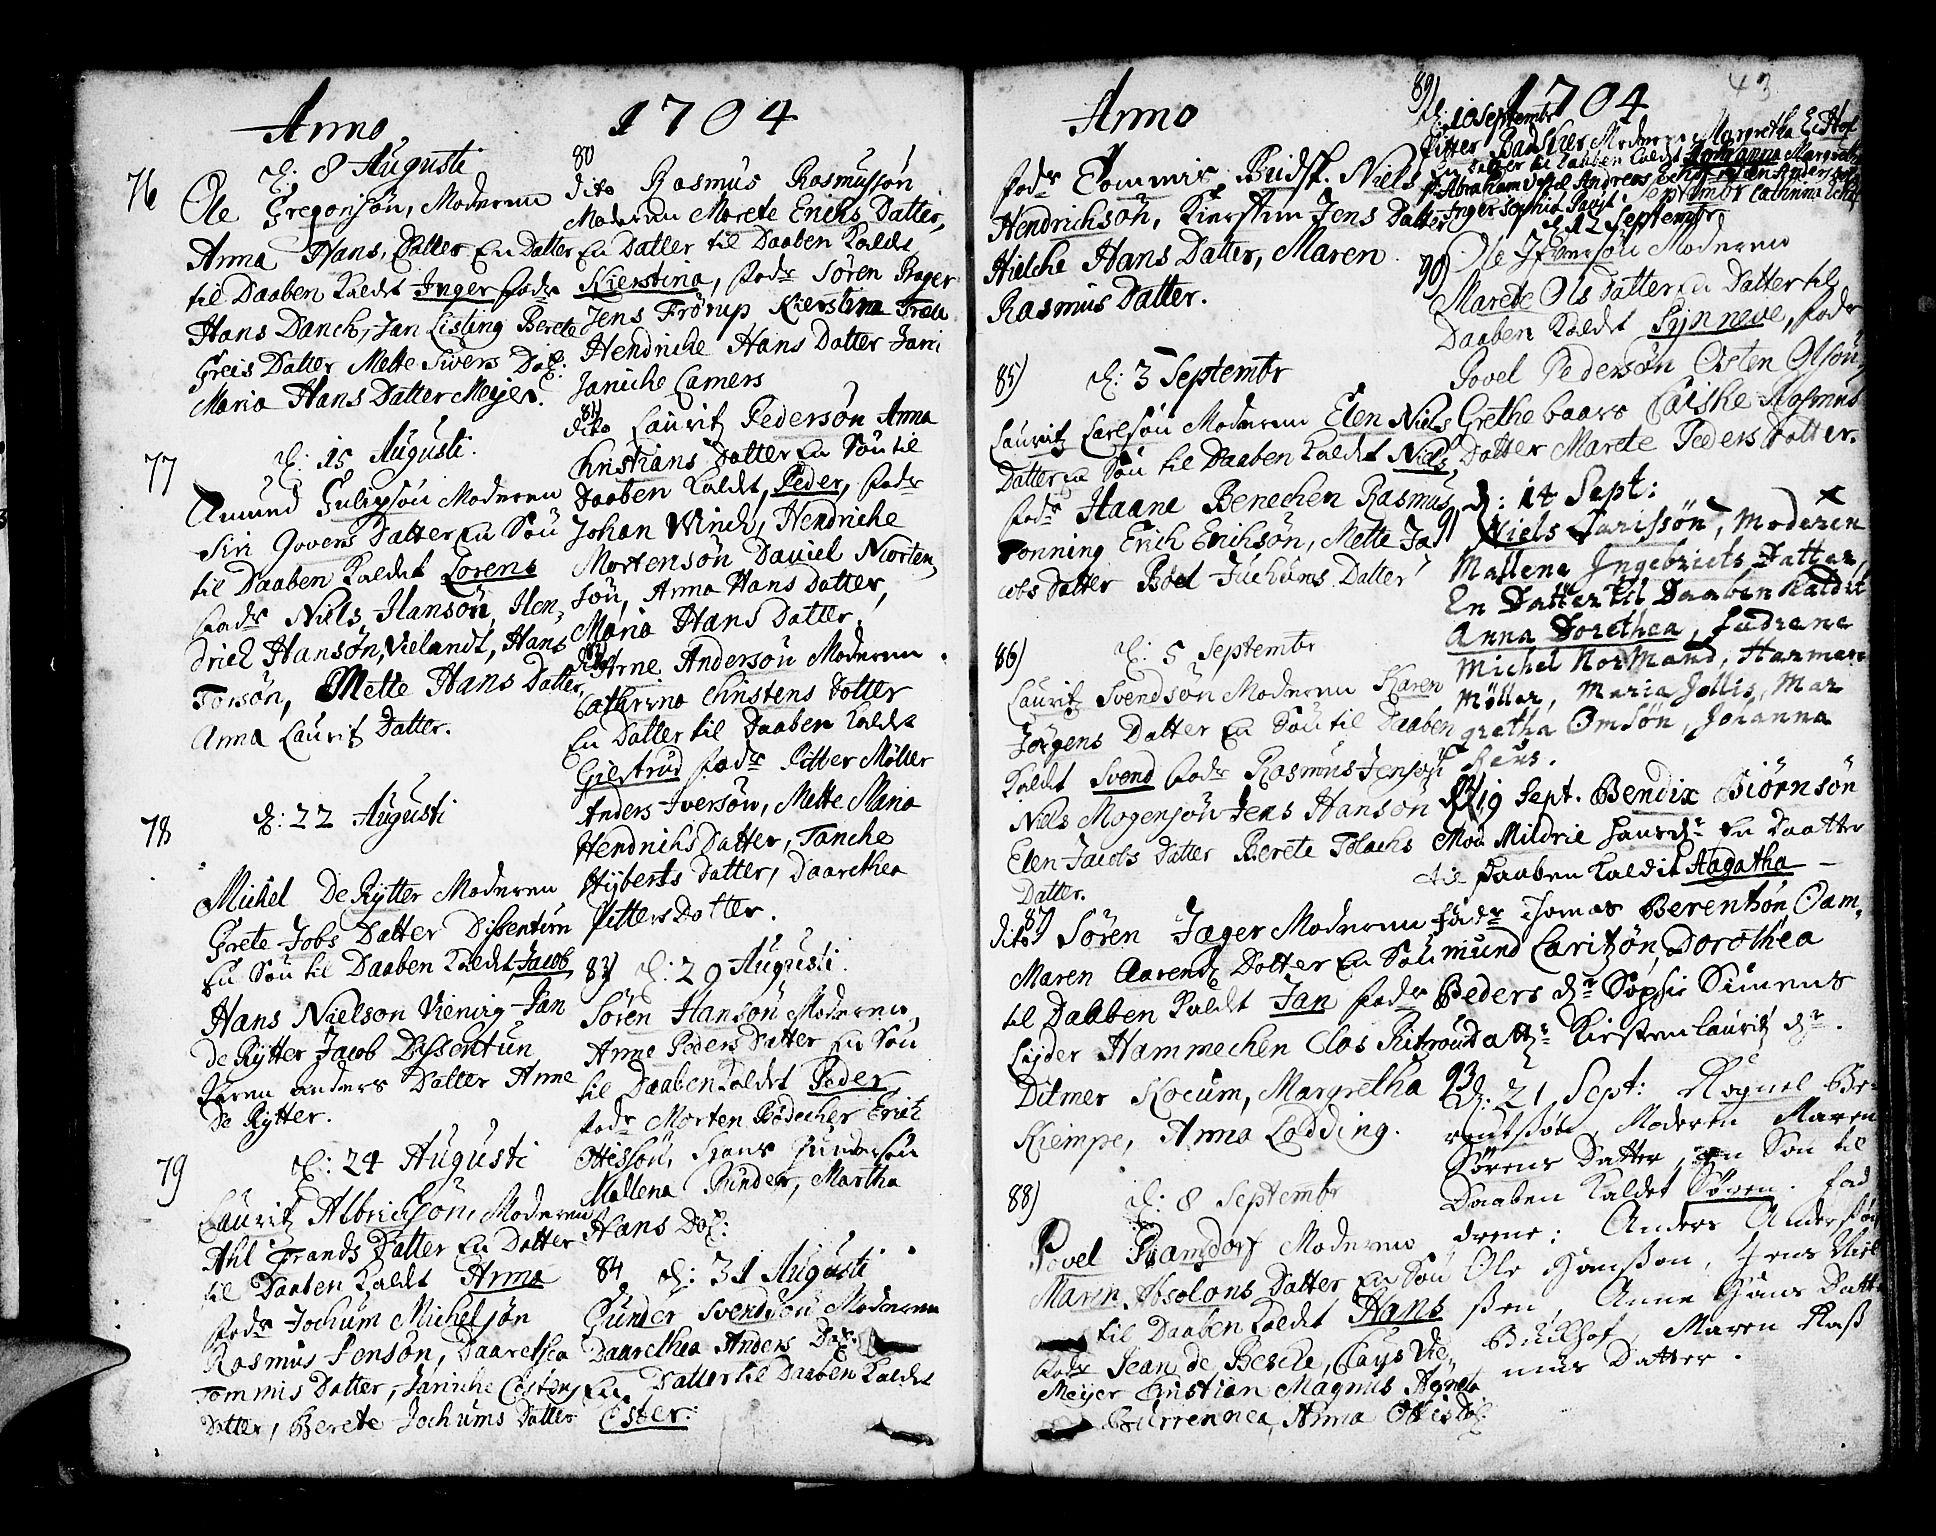 Anno 1704
76
d: 8 Augusti
Ole Gregorisøn, Moderen
Anna Hans Datter En Datter
til Daaben Kaldet Inger fadr
Hans Danch, Jan Listing Berete
Greis Datter Mette Sivers Dat:
Maria Hans Datter Meijer.
77
d: 15 Augusti.
Amund Moderen
Siri Govers Datter En Søn
til Daaben Kaldet Lorens
fadr Niels Hansøn, Hen,
drich Hansøn, Vielandt, Hans
Torsøn, Mette Hans Datter,
Anna Lauritz Datter.
78
d: 22 Augusti
Michel De Rytter Moderen
Grete Jobs Datter Dissentun
En Søn til Daaben Kaldet Jacob
Hans Nielson Vienirg Jan
de Rytter Jacob Dissentun
Karen anders Datter Anne
De Rytter.
79
d: 24 Augusti
Lauritz Albrichsøn, Moderen
Ahl Trands Datter En Datter
til Daaben Kaldt Anna
fadr Jochum Michelsøn
Rasmus Jensøn, Daarethea
Tommis Datter, Janniche Costens
Datter, Berete Jochums Datter
80
dito Rasmus Rasmussøn
Moderen Marete Erichs Datter,
En Datter til Daaben Kaldt
Kierstina, fadr Søren Prager
Jens Frörup Kierstina
Hendriche Hans Datter Jani
Janiche Camers
81
dito Lauritz Pedersøn Anna
Christians Datter En Søn til
Daaben Kaldt, Peder, fadr
Johan Winch, Hendriche
Mortensøn Daniel Morten,
søn, Anna Hans Datter,
Maria Hans Datter.
82
dito Arne Andersøn Moderen
Cathrina Christens Datter
En Datter til Daaben Kaldt
Giertrud fadr Pitter Møller
Anders Iversøn, Mette Maria
Hendrichs Datter, Tanche
Hyberts Datter, Daarethea
Pitters Datter.
83) d: 29 Augusti.
Søren Hansøn Moderen
Anne Peders Datter En Søn
til Daaben Kaldet Peder
fadr Morten Bødecher Erich
Ottessøn, Hans Gundersøn
Mallena Gunder, Martha
Hans Dat:
84 d: 31 Augusti
Gunder Svendsøn Moderen
Daarethea Anders Dat:
En Datter til Daaben Kaldet
Ester:
Anno 1704
43
fadr Tommis Budsk. Niels
Hendrichsøn, Kiersten Jens Datter
Hielche Hans Datter, Maren
Rasmus Datter.
85) d: 3 Septembr
Lauritz Carlsøn Moderen Elen Niels
Datter En Søn til Daaben Kaldet Niels
fadr Haane Benechen Rasmus
Tonning Erich Erichsøn, Mette Ja
cobs Datter Boel Juchums Datter
86) d: 5 Septembr
Lauritz Svendsøn Moderen Karen
Jørgens Datter En Søn til Daaben
Kaldet Svend fadr Rasmus Jensøn
Niels Mogensøn Jens Hansøn
Elen Jacobs Datter Berete Tolachs
Datter.
87)
dito Søren Jæger Moderen
Maren Aarends Datter En Søn
til Daaben Kaldt Jan fadr
Lyder Hammechen Clos
Ditmer Kocum, Margretha
Kiempe, Anna Lodding.
88) d: 8 Septembr
Povel Ramsdorf Moderen
Maren Absolons Datter En Søn
til Daaben Kaldt Hans
fadr Jean de Besche, Clays De
Meyer Cristian Magnus Agneta
Burrennea, Anna Ottis Dat:
89) d: 10 Septembr
Pitter Moderen Margretha
En Datter til Daaben Kaldt Margreth
fr Abraham Andreas
Inger Sophia Cathrina
d 12 Septembr,
90) Ole Moderen
Marete Ols Datter En Datter til
Daaben Kaldet Synneve, fadr
Povel Pedersøn Osten Olsøn
Grethe baars Ceiske Rasmus
Datter Marete Peders Datter.
91 d: 14 Sept:
Niels Jarissøn, Moderen
Mallena Ingebriets Datter,
En Datter til Daaben Kaldet
Anna Dorethea, fadrene
Michel Normand, Harman
Møller, Maria Jellis, Mar
gretha Omsøn, Johanna
Reus.
92) d 19 Sept. Bendix Biørnsøn
Mod. Mildrie En Daatter
til Daaben Kaldit Aagatha
fadr Thomas Berentsøn Oam,
mund Laritzøn, Dorothea
Peders dr Sophie Simens
datt: Kirsten Lauritz dr.
93
d: 21 Sept: Rognel Be-
rentsøn, Moderen Maren
Sørens Datter, en Søn til
Daaben Kaldet Søren. fad
drene; Anders Anderssøn
Ole Hanssøn, Jens Niel
ssen, Anne Hans Datter
Buchhof, Maren Rass
mus Datter.